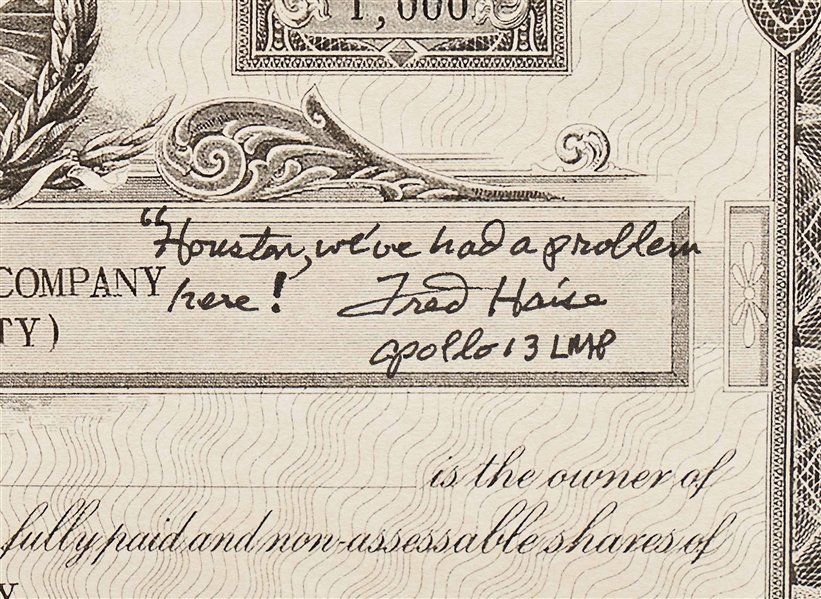 1,000
"Houston, we've had a problem
COMPANY
here! Fred Haise
TY)
Apollo 13 LMP
is the owner of
fully paid and non-assessable shares of
Y